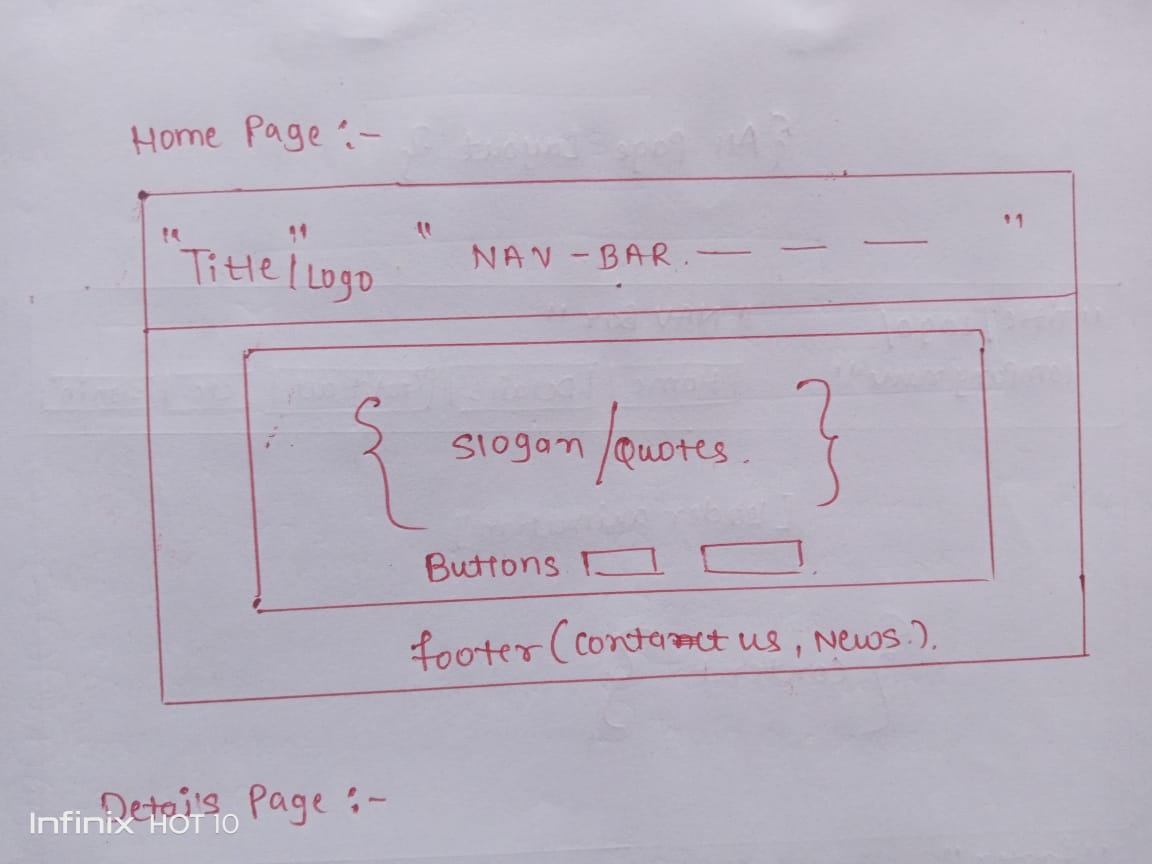 Home Page :-
"Title"/Logo " NAV-BAR. — — — "
{ Slogan/Quotes. }
Buttons
footer (contact us, News.).
Details Page :-
Infinix HOT 10